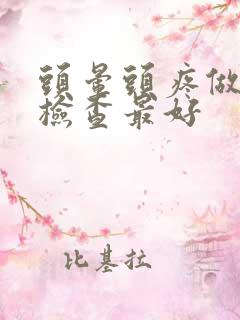 頭暈頭疼做
檢查最好
比基拉